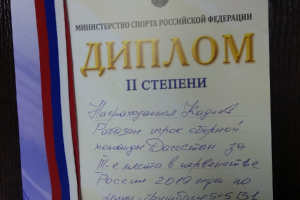 МИНИСТЕРСТВО СПОРТА РОССИЙСКОЙ ФЕДЕРАЦИИ
ДИПЛОМ
II СТЕПЕНИ
Награждается Кадиев
Рабазан игрок сборной
команды Дагестан за
III-е место в первенстве
России 2019 года по